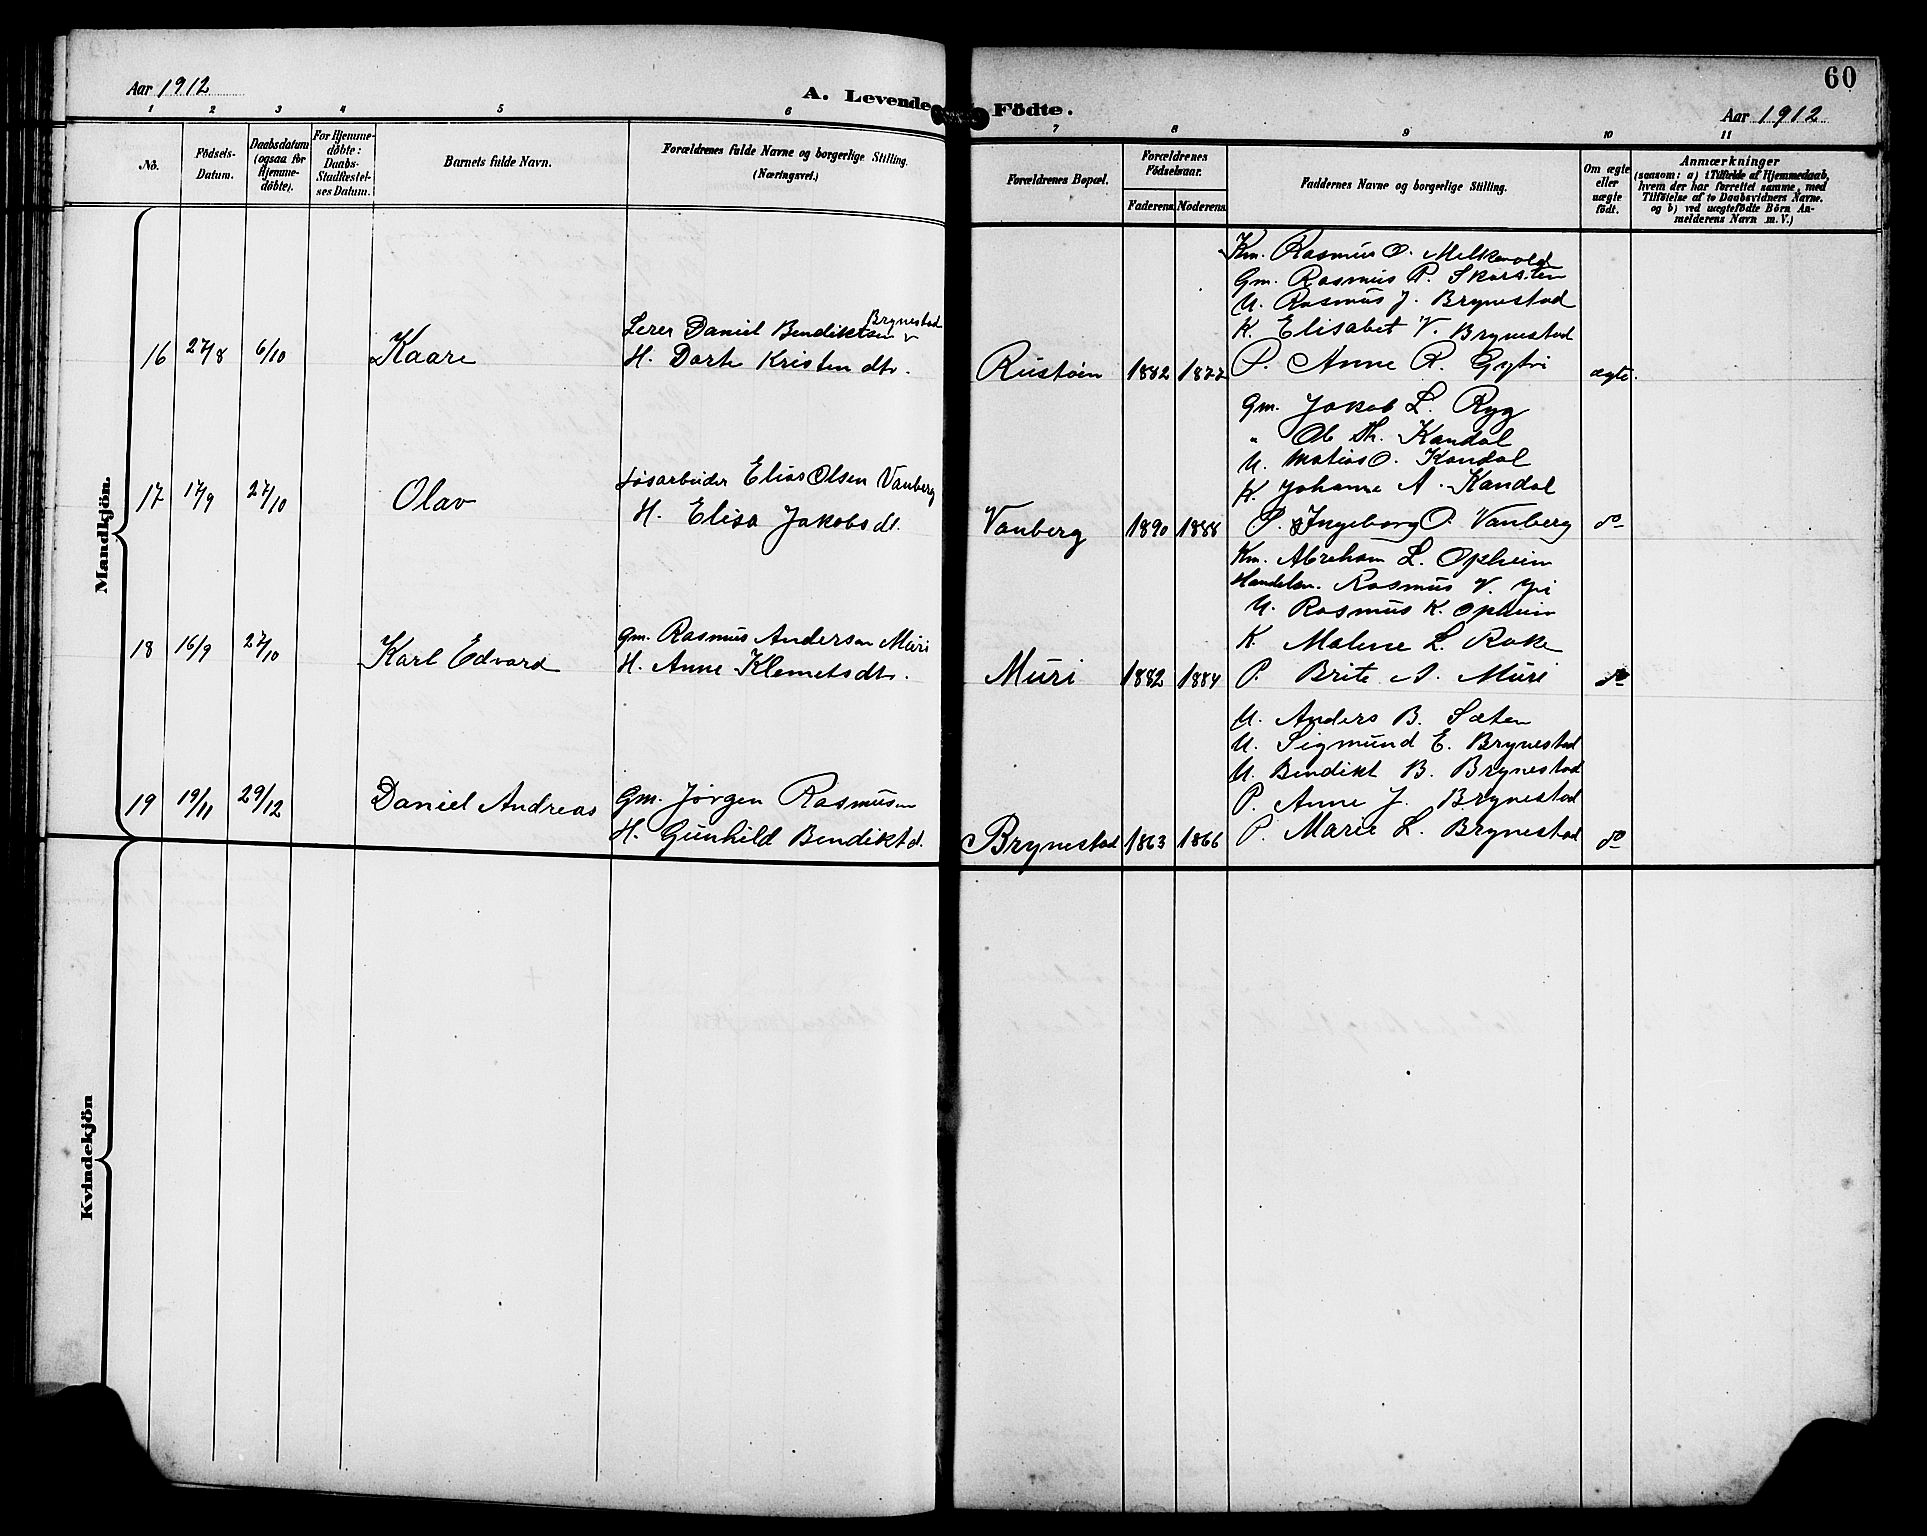 60
Aar 1912
A. Levende Födte.
Aar 1912
1 2 3 4 5 6 7 8 9 10 11
No.
Födsels-
Datum.
Daabsdatum
(ogsaa for
Hjemme-
döbte).
For Hjemme-
döbte:
Daabs-
Stadfæstel-
ses Datum.
Barnets fulde Navn.
Forældrenes fulde Navne og borgerlige Stilling.
(Næringsvei.)
Forældrenes Bopæl.
Forældrenes
Födselsaar.
Faderens Moderens
Faddernes Navne og borgerlige Stilling.
Om ægte
eller
uægte
födt.
Anmærkninger
(saasom: a) i Tilfælde af Hjemmedaab,
hvem der har forrettet samme, med
Tilföielse af to Daabsvidners Navne.
og b) ved uægtefödte Börn An-
melderens Navn m. V.)
Mandkjön.
16 27/8 6/10 Kaare
Lerer Daniel Bendiktsen Brynestad
H. Dorte Kristendtr.
Rustøen 1882 1877
Km. Rasmus O. Melkevold
Gm. Rasmus P. Skarsten
U. Rasmus J. Brynestad
K. Elisabet V. Brynestad
P. Anne R. Gytri
ægte.
17 17/9 27/10 Olav
Løsarbeider Elias Olsen Vanberg
H. Elisa Jakobsdt.
Vanberg 1890 1888
Gm. Jakob L. Ryg
" Ole Th. Kandal
U. Matias O. Kandal
K. Johanne A. Kandal
P. Ingeborg O. Vanberg
do
18 16/9 27/10 Karl Edvard
Gm. Rasmus Andersen Muri
H. Anne Klemetsdtr.
Muri 1882 1884
Km. Abraham L. Opheim
Handelsm. Rasmus V. Yri
U. Rasmus K. Opheim
K. Malene L. Rake
P. Brite A. Muri
do
19 19/11 29/12 Daniel Andreas
Gm. Jørgen Rasmusen
H. Gunhild Bendiktd.
Brynestad 1863 1866
U. Anders B. Sæten
U. Sigmund E. Brynestad
U. Bendikt B. Brynestad
P. Anne J. Brynestad
P. Marie L. Brynestad
do
Kvindekjön